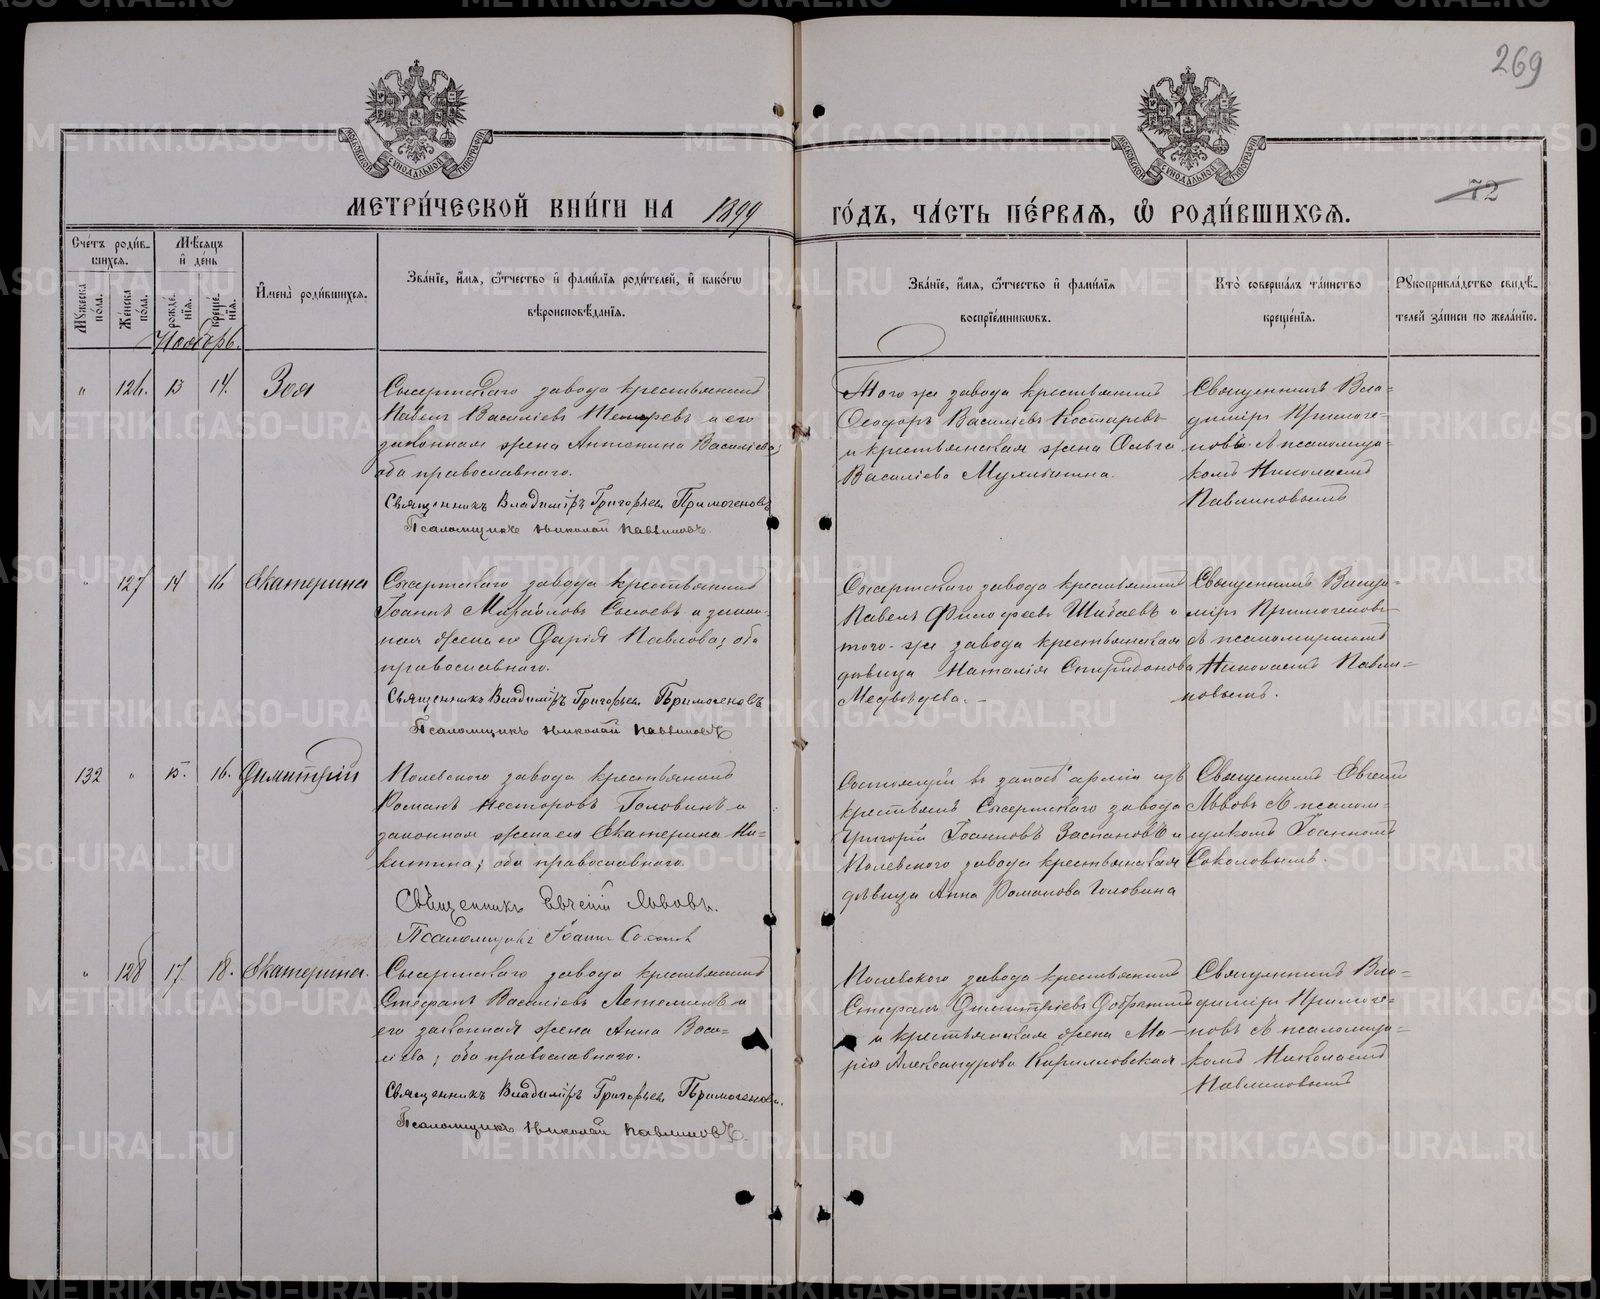 269
МОСКОВСКОЙ СѴНОДАЛЬНОЙ ТИПОГРАФІИ
МОСКОВСКОЙ СѴНОДАЛЬНОЙ ТИПОГРАФІИ
72
МЕТРИ́ЧЕСКОЙ КНИ́ГИ НА 1899
ГО́ДЪ, ЧА́СТЬ ПЕ́РВАѦ, Ѡ҆ РОДИ́ВШИХСѦ.
Сче́тъ роди́в-
шихсѧ.
Мѣ́сѧцъ
и҆ де́нь
Мꙋ́жеска по́ла.
Же́нска по́ла.
рожде́-
нїѧ.
креще́-
нїѧ.
И҆мена̀ роди́вшихсѧ.
Зва́нїе, и҆́мѧ, ѻ҆́тчество и҆ фами́лїѧ роди́телей, и҆ како́гѡ
вѣроисповѣ́данїѧ.
Зва́нїе, и҆́мѧ, ѻ҆́тчество и҆ фами́лїѧ
воспрїе́мникѡвъ.
Кто̀ соверша́лъ та́инство
креще́нїѧ.
Рꙋкоприкла́дство свидѣ́-
телей за́писи по жела́нїю.
Ноябрь.
" 126. 13 14. Зоя
Сысертскаго завода крестьянинъ
Павелъ Васильевъ и его
законная жена Антонина Васильева;
оба православнаго.
Священникъ Владиміръ Григорьев Примогеновъ
Псаломщикъ Николай Павлиновъ.
Того же завода крестьянинъ
Ѳеодоръ Васильевъ Костаревъ
и крестьянская жена Ольга
Васильева
Священникъ Вла-
диміръ Примоге-
новъ съ псаломщи-
комъ Николаемъ
Павлиновымъ
" 127 14 16 Екатерина
Сысертскаго завода крестьянинъ
Іоаннъ Михайловъ Сысоевъ и закон-
ная жена его Дарія Павлова; оба
православнаго.
Священникъ Владиміръ Григорьев Примогеновъ
Псаломщикъ Николай Павлиновъ
Сысертскаго завода крестьянинъ
Павелъ Филофеевъ Шибаевъ и
того-же завода крестьянская
дѣвица Наталія Спиридонова
Медвѣдева. -
Священникъ Влади-
міръ Примогеновъ
съ псаломщикомъ
Николаемъ Павли-
новымъ.
132 " 15. 16. Димитрій
Полевского завода крестьянинъ
Романъ Несторовъ Головинъ и
законная жена его Екатерина Ни-
китина; оба православнаго.
Священникъ Евгеній Львовъ.
Псаломщикъ Іоаннъ Соколовъ
Состоящій въ запасѣ арміи изъ
крестьянъ Сысертскаго завода
Григорій Іоанновъ Заспановъ и
Полевского завода крестьянская
дѣвица Анна Романова Головина
Священникъ Евгеній
Львовъ съ псалом-
щикомъ Іоанномъ
Соколовымъ.
" 128 17. 18. Екатерина.
Сысертскаго завода крестьянинъ
Стефанъ Васильевъ Летеминъ и
его законная жена Анна Васи-
льева; оба православнаго.
Священникъ Владиміръ Григорьев Примогеновъ.
Псаломщикъ Николай Павлиновъ.
Полевского завода крестьянинъ
Стефанъ Димитріевъ Добрынинъ
и крестьянская жена Ма-
рія Александрова Кирилловская
Священникъ Вла-
диміръ Примоге-
новъ съ псаломщи-
комъ Николаемъ
Павлиновымъ
METRIKI.GASO-URAL.RU